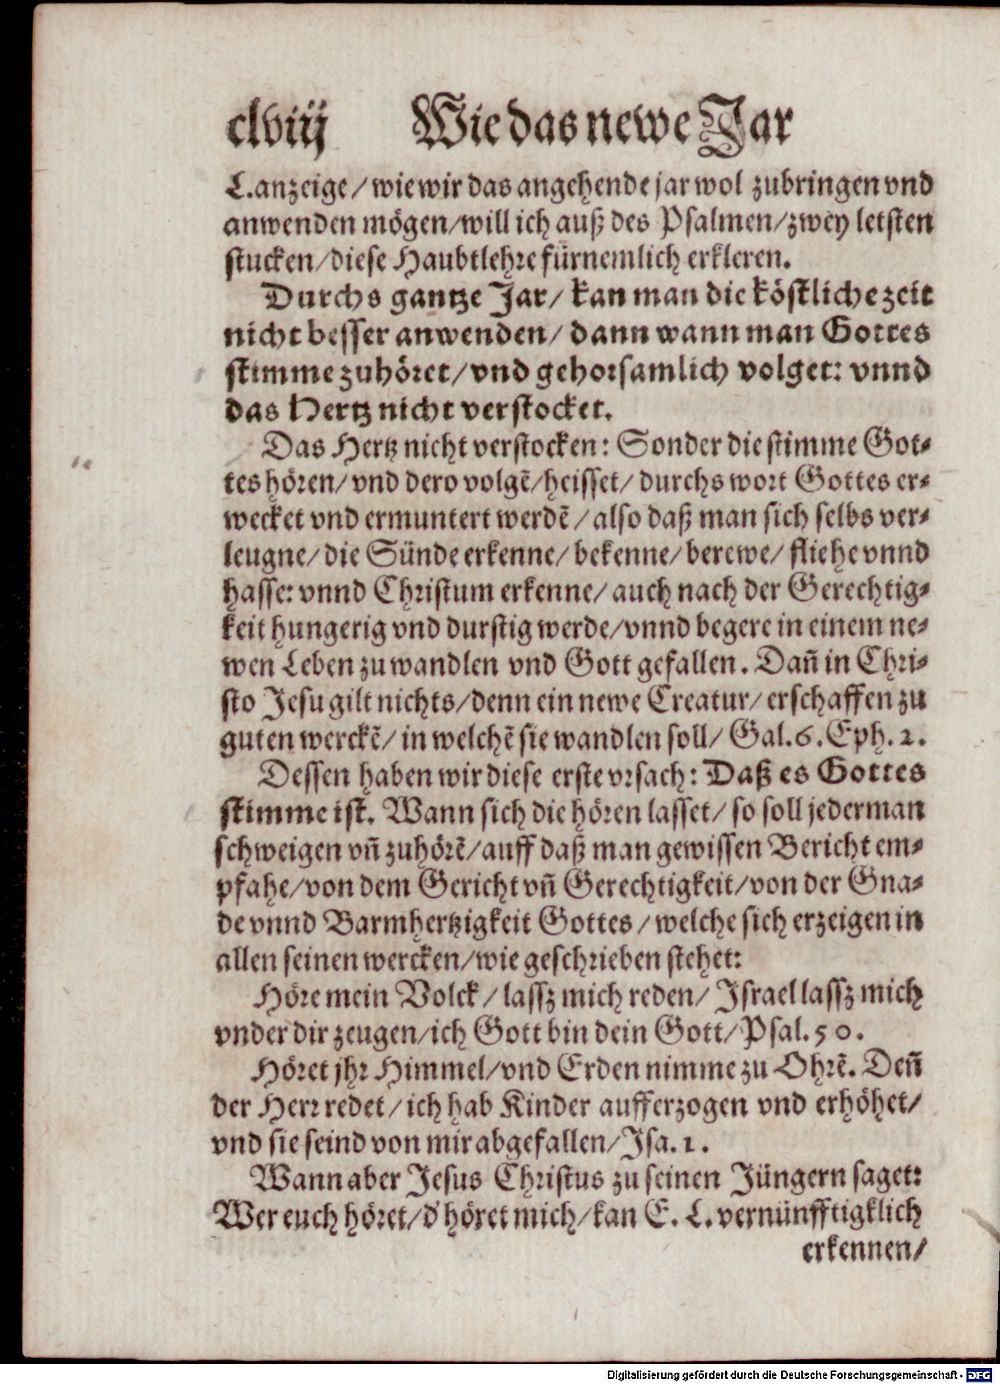 clviij Wie das newe Jar
L. anzeige / wie wir das angehende jar wol zubringen vnd
anwenden mögen / will ich auß des Psalmen / zwey letsten
stucken / diese Haubtlehre fürnemlich erkleren.
Durchs gantze Jar / kan man die köstliche zeit
nicht besser anwenden / dann wann man Gottes
stimme zuhöret / vnd gehorsamlich volget: vnnd
das Hertz nicht verstocket.
Das Hertz nicht verstocken: Sonder die stimme Got-
tes hören / vnd dero volgẽ / heisset / durchs wort Gottes er-
wecket vnd ermuntert werdẽ / also daß man sich selbs ver-
leugne / die Sünde erkenne / bekenne / berewe / fliehe vnnd
hasse: vnnd Christum erkenne / auch nach der Gerechtig-
keit hungerig vnd durstig werde / vnnd begere in einem ne-
wen Leben zu wandlen vnd Gott gefallen. Dañ in Chri-
sto Jesu gilt nichts / denn ein newe Creatur / erschaffen zu
guten werckẽ / in welchẽ sie wandlen soll / Gal. 6. Eph. 2.
Dessen haben wir diese erste vrsach: Daß es Gottes
stimme ist. Wann sich die hören lasset / so soll jederman
schweigen vñ zuhörẽ / auff daß man gewissen Bericht em-
pfahe / von dem Gericht vñ Gerechtigkeit / von der Gna-
de vnnd Barmhertzigkeit Gottes / welche sich erzeigen in
allen seinen wercken / wie geschrieben stehet:
Höre mein Volck / lassz mich reden / Israel lassz mich
vnder dir zeugen / ich Gott bin dein Gott / Psal. 50.
Höret jhr Himmel / vnd Erden nimme zu Ohrẽ. Deñ
der Herr redet / ich hab Kinder aufferzogen vnd erhöhet /
vnd sie seind von mir abgefallen / Jsa. 1.
Wann aber Jesus Christus zu seinen Jüngern saget:
Wer euch höret / d' höret mich / kan E. L. vernünfftigklich
erkennen /
Digitalisierung gefördert durch die Deutsche Forschungsgemeinschaft - DFG